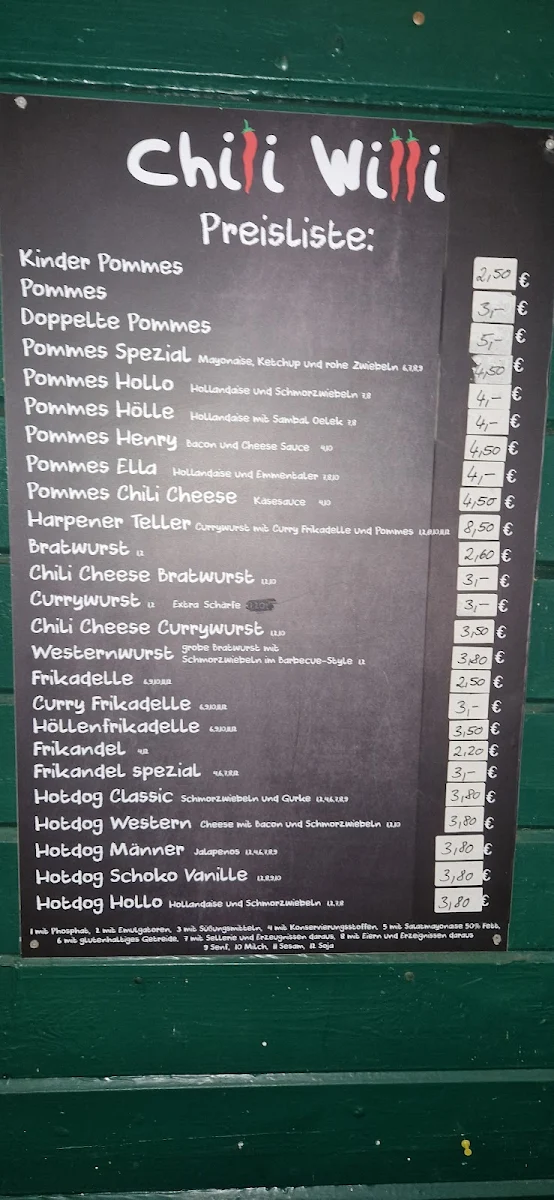 Chili Willi
Preisliste:
Kinder Pommes 2,50 €
Pommes 3,- €
Doppelte Pommes 5,- €
Pommes Spezial Mayonaise, Ketchup und rohe Zwiebeln 6,7,8,9 4,50 €
Pommes Hollo Hollandaise und Schmorzwiebeln 7,8 4,- €
Pommes Hölle Hollandaise mit Sambal Oelek 7,8 4,- €
Pommes Henry Bacon und Cheese Sauce 4,10 4,50 €
Pommes Ella Hollandaise und Emmentaler 7,8,10 4,- €
Pommes Chili Cheese Käsesauce 4,10 4,50 €
Harpener Teller Currywurst mit Curry Frikadelle und Pommes 8,50 €
Bratwurst 1,2 2,60 €
Chili Cheese Bratwurst 1,2,10 3,- €
Currywurst 1,2 Extra Schärfe 3,- €
Chili Cheese Currywurst 1,2,10 3,50 €
Westernwurst grobe Bratwurst mit
Schmorzwiebeln im Barbecue-Style 1,2 3,80 €
Frikadelle 6,9,10,11,12 2,50 €
Curry Frikadelle 6,9,10,11,12 3,- €
Höllenfrikadelle 6,9,10,11,12 3,50 €
Frikandel 4,12 2,20 €
Frikandel spezial 4,6,7,8,12 3,- €
Hotdog Classic Schmorzwiebeln und Gurke 1,2,4,6,7,8,9 3,80 €
Hotdog Western Cheese mit Bacon und Schmorzwiebeln 1,2,10 3,80 €
Hotdog Männer Jalapenos 1,2,4,6,7,8,9 3,80 €
Hotdog Schoko Vanille 1,2,8,9,10 3,80 €
Hotdog Hollo Hollandaise und Schmorzwiebeln 1,2,7,8 3,80 €
1 mit Phosphat, 2 mit Emulgatoren, 3 mit Süßungsmitteln, 4 mit Konservierungsstoffen, 5 mit Salatmayonaise 50% Fett,
6 mit glutenhaltiges Getreide, 7 mit Sellerie und Erzeugnissen daraus, 8 mit Eiern und Erzeignissen daraus
9 Senf, 10 Milch, 11 Sesam, 12 Soja